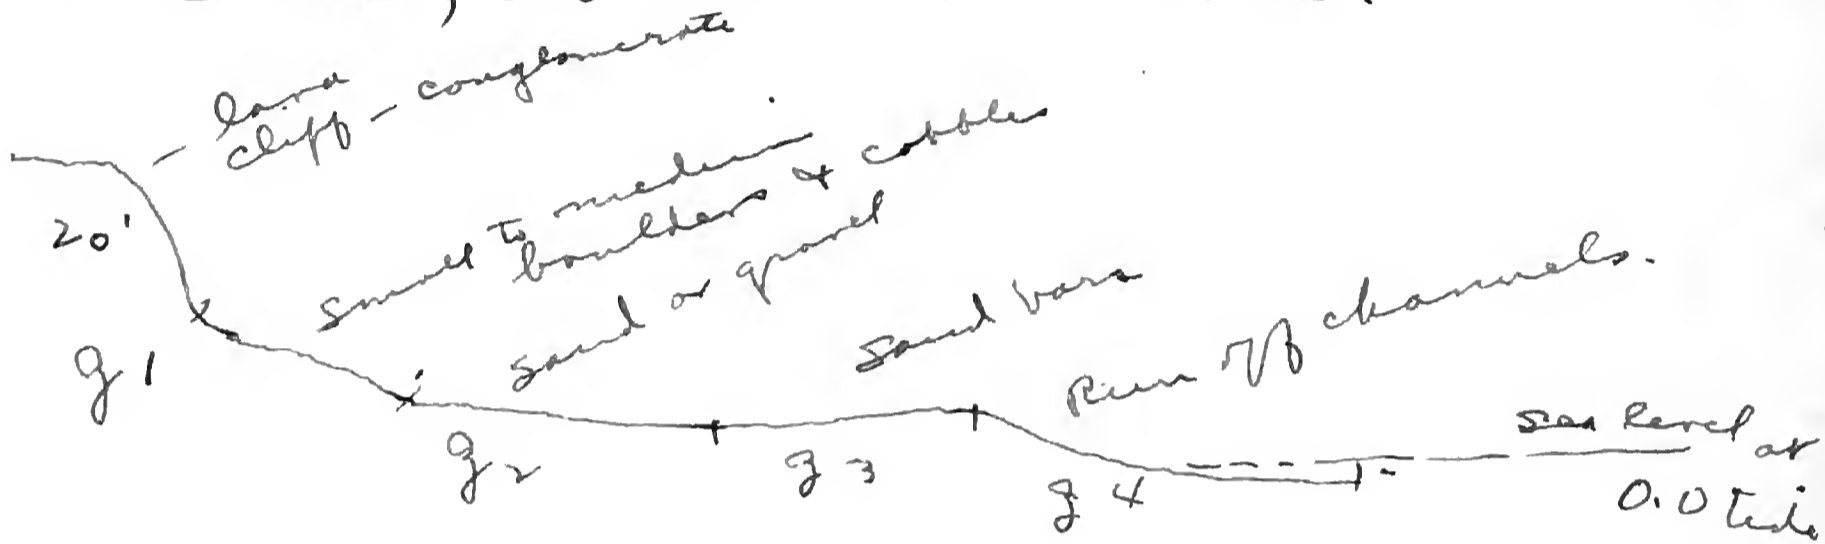 land
cliff - conglomerate
20'
small to medium
boulders & cobbles
sand or gravel
sand bars
Run off channels.
g1
g2
g3
g4
sea level at
0.0 Tide